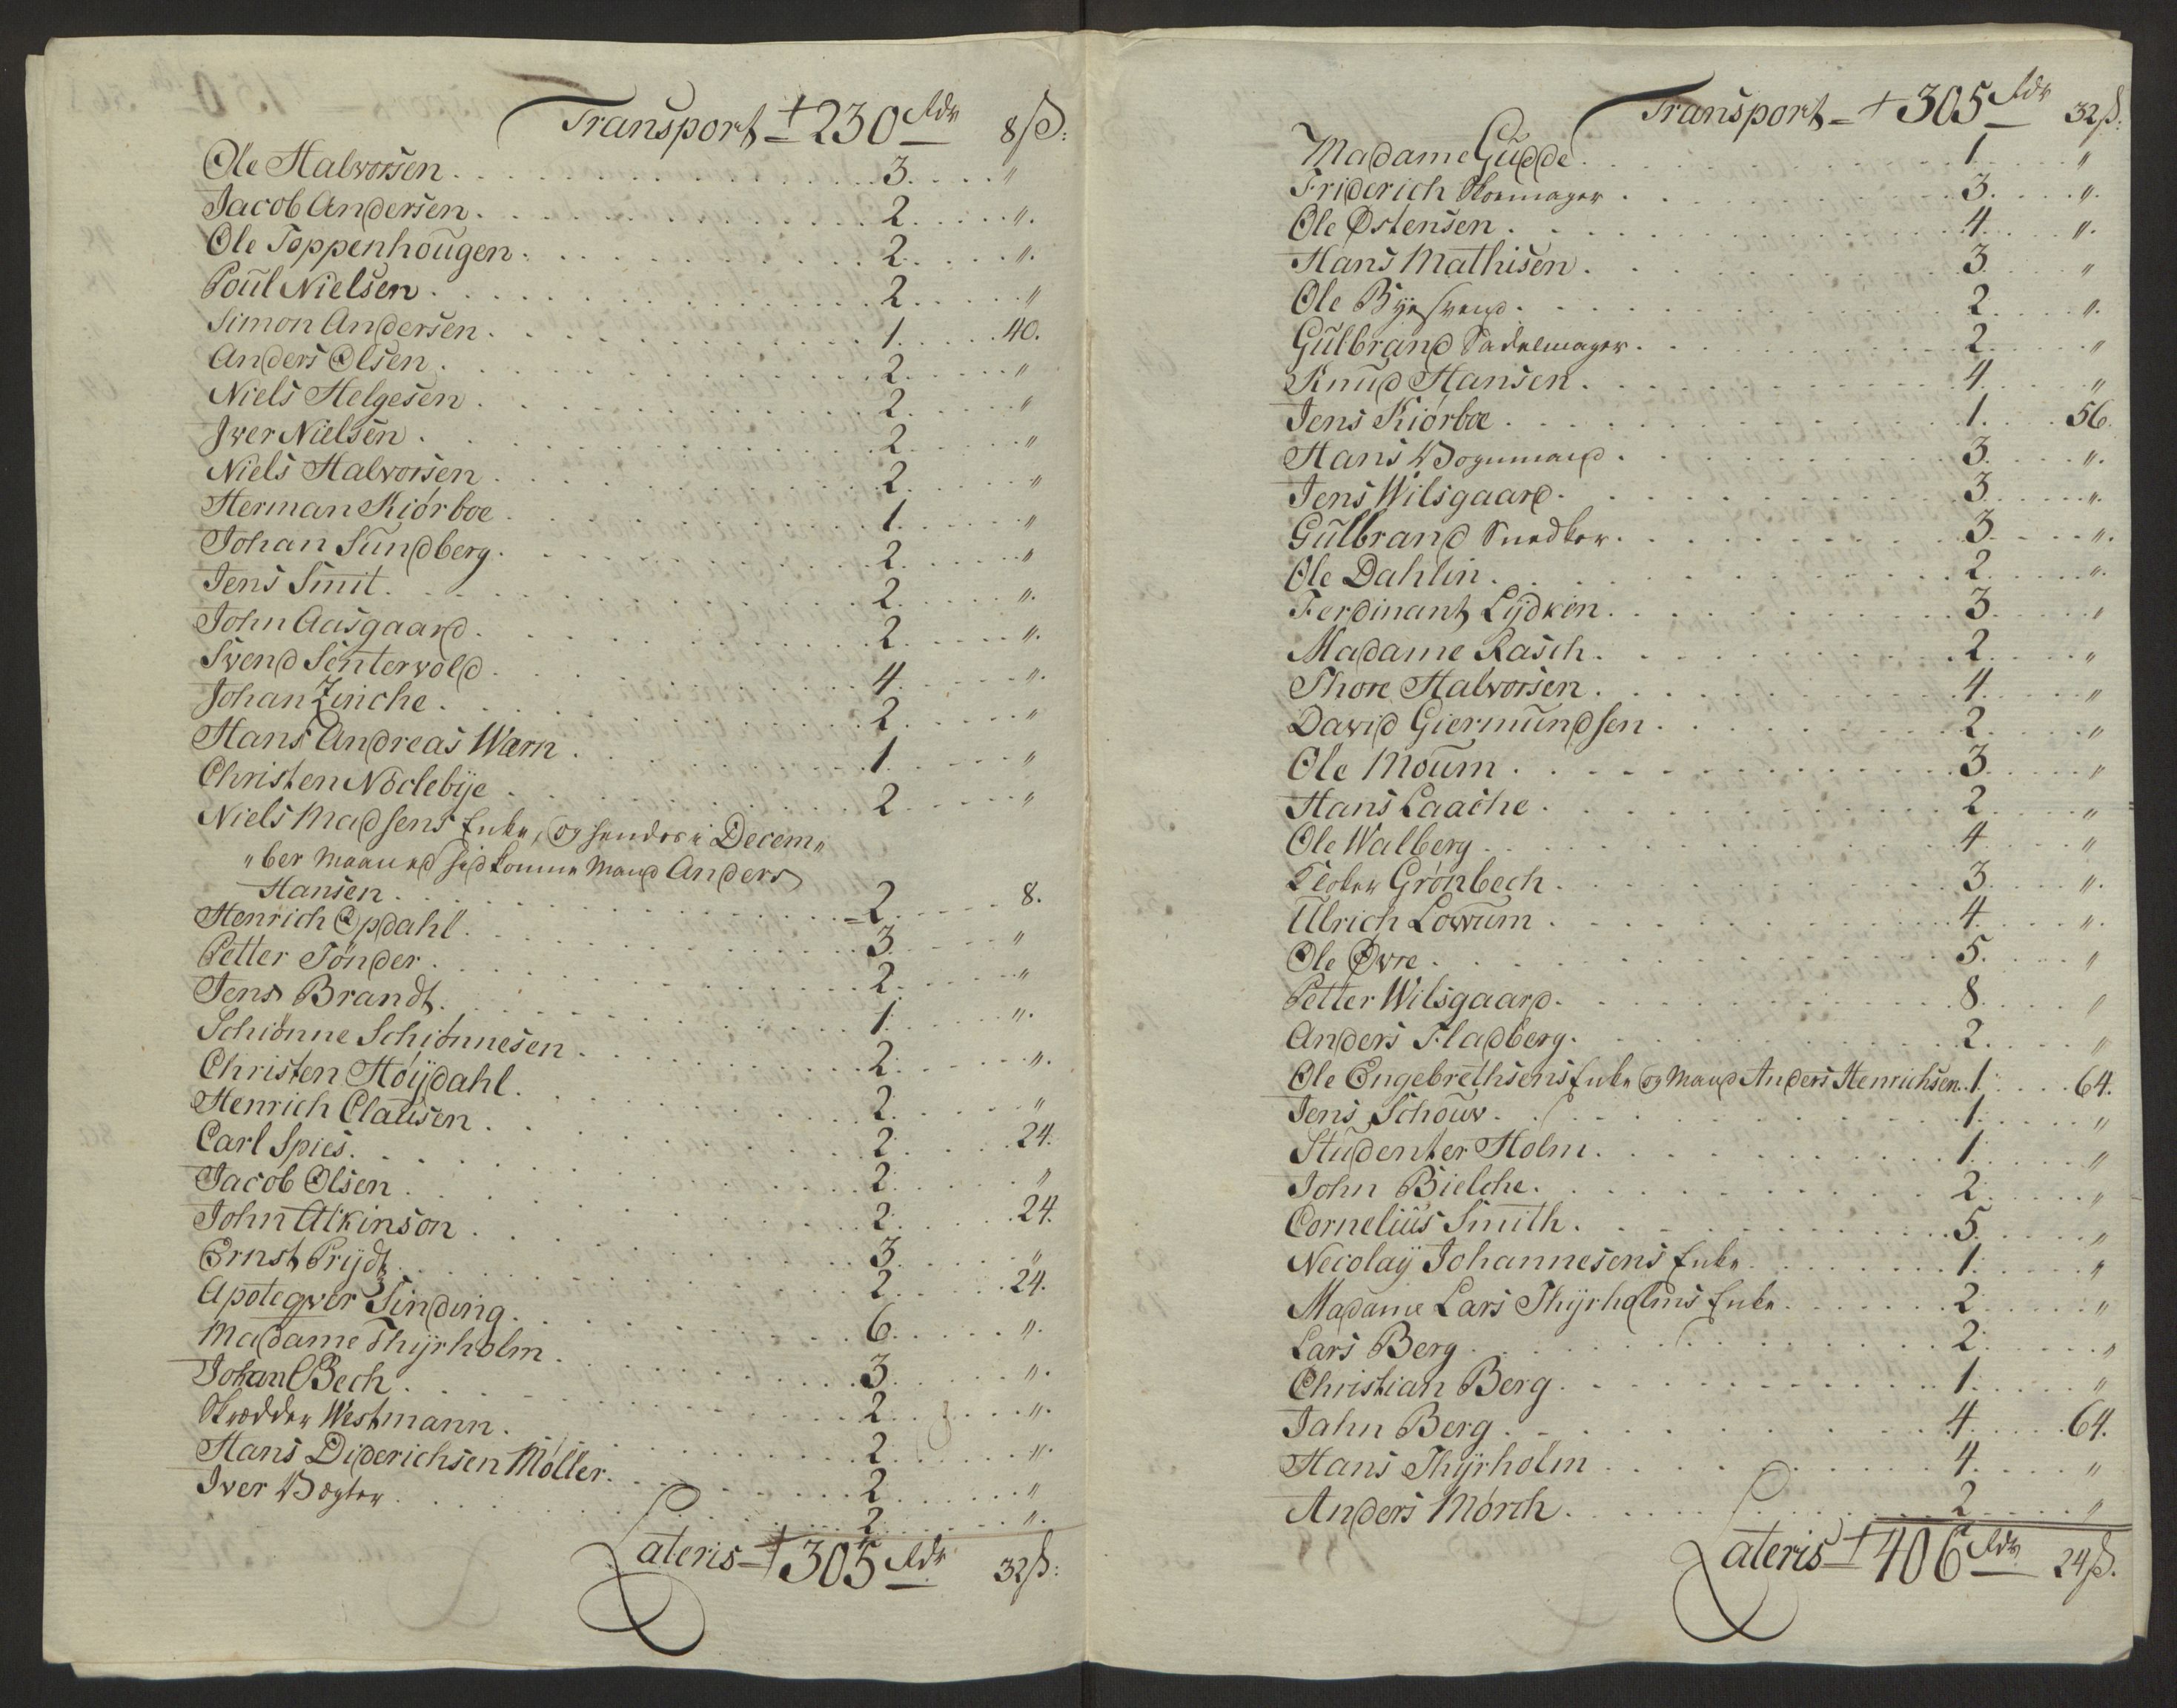 Transport - 230 Rdr 8 ß:
Ole Halvorsen 3 "
Jacob Andersen 2 "
Ole Toppenhougen 2 "
Poul Nielsen 2 "
Simon Andersen 1 40.
Anders Olsen 2 "
Niels Helgesen 2 "
Iver Nielsen 2 "
Niels Halvorsen 2 "
Herman Kiörboe 1 "
Johan Sundberg 2 "
Jens Smit 2 "
John Aasgaard 2 "
Svend Sentervold 4 "
Johan Zinche 2 "
Hans Andreas Wærn 1 "
Christen Nöclebije 2 "
Niels Madsens Enke, og hendes i Decem„
„ber Maaned sidkomne Mand Anders
Hansen 2 8.
Henrich Opdahl 3 "
Petter Tönder 2 "
Jens Brandt 1 "
Schiönne Schiönnesen 2 "
Christen Höijdahl 2 "
Henrich Clausen 2 24.
Carl Spies 2 "
Jacob Olsen 2 24.
John Atkinson 3 "
Ernst Prydtz 2 24.
Apoteqver Sinding 6 "
Madame Thijrholm 3 "
Johan Bech 2 "
Skrædder Westmann 2 "
Hans Diderichsen Möller 2 "
Iver Bøgter 2 "
Lateris - 305 Rdr 32 ß:
Transport - 305 Rdr 32 ß:
Madame Gudde 1 "
Friderich Skoemager 3 "
Ole Østensen 4 "
Hans Mathisen 3 "
Ole Byesvend 2 "
Gulbrand Sadelmager 2 "
Knud Hansen 4 "
Jens Kiörboe 1 56.
Hans Vognmand 3 "
Jens Wilsgaard 3 "
Gulbrand Snedker 3 "
Ole Dahlin 2 "
Ferdinant Lijdkin 3 "
Madame Rasch 2 "
Thore Halvorsen 4 "
David Giermundsen 2 "
Ole Moum 3 "
Hans Laache 2 "
Ole Walberg 4 "
Kloker Grönbech 3 "
Ulrich Lowum 4 "
Ole Øvre 5 "
Petter Wilsgaard 8 "
Anders Fladberg 2 "
Ole Engebrethsens Enke og Mand Anders Henrichsen 1 64.
Jens Schouw 1 "
Studenter Holm 1 "
John Bielche 2 "
Cornelius Smith 5 "
Necolaij Johannesens Enke 1 "
Madame Lars Thijrholms Enke 2 "
Lars Berg 2 "
Christian Berg 1 "
Jahn Berg 4 64.
Hans Thijrholm 4 "
Anders Mörch 2 "
Lateris - 406 Rdr 24 ß.